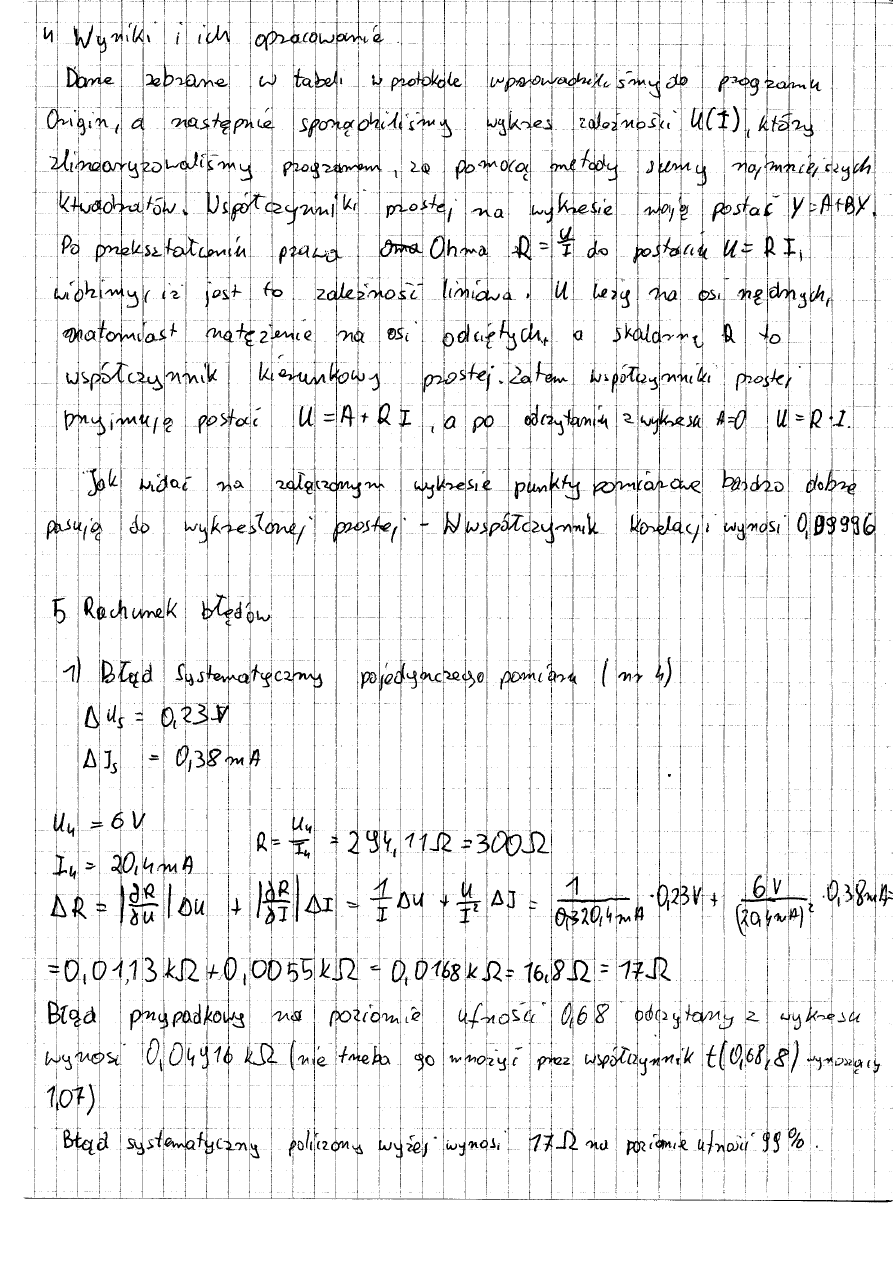 4 Wyniki i ich opracowanie
Dane zebrane w tabeli w protokole wprowadziliśmy do programu
Origin, a następnie sporządziliśmy wykres zależności U(I), który
zlinearyzowaliśmy programem, za pomocą metody sumy najmniejszych
kwadratów. Współczynniki prostej na wykresie mają postać Y=A+BX.
Po przekształceniu prawa Ohma R = U/I do postaciu U = R I,
widzimy, iż jest to zależność liniowa. U leży na osi rzędnych,
natomiast natężenie na osi odciętych, a skalarne R to
współczynnik kierunkowy prostej. Zatem współczynniki prostej
przyjmują postać U = A + R I, a po odczytaniu z wykresu A=0 U = R · I.
Jak widać na załączonym wykresie punkty pomiarowe bardzo dobrze
pasują do wykreślonej prostej - Współczynnik korelacji wynosi 0,99996
5 Rachunek błędów
1) Błąd systematyczny pojedynczego pomiaru (nr 4)
ΔUs = 0,23V
ΔIs = 0,38mA
U4 = 6V
R = U4/I4 = 294,11Ω = 300Ω
I4 = 20,4mA
ΔR = |∂R/∂U| ΔU + |∂R/∂I| ΔI = 1/I ΔU + U/I² ΔI = 1/20,4mA · 0,23V + 6V/(20,4mA)² · 0,38mA=
= 0,0113 kΩ + 0,0055 kΩ = 0,0168 kΩ = 16,8Ω = 17Ω
Błąd przypadkowy na poziomie ufności 0,68 odczytany z wykresu
wynosi 0,04916 kΩ (nie trzeba go mnożyć przez współczynnik t(0,68,8) wynoszący
1,07)
Błąd systematyczny policzony wyżej wynosi 17Ω na poziomie ufności 99%.